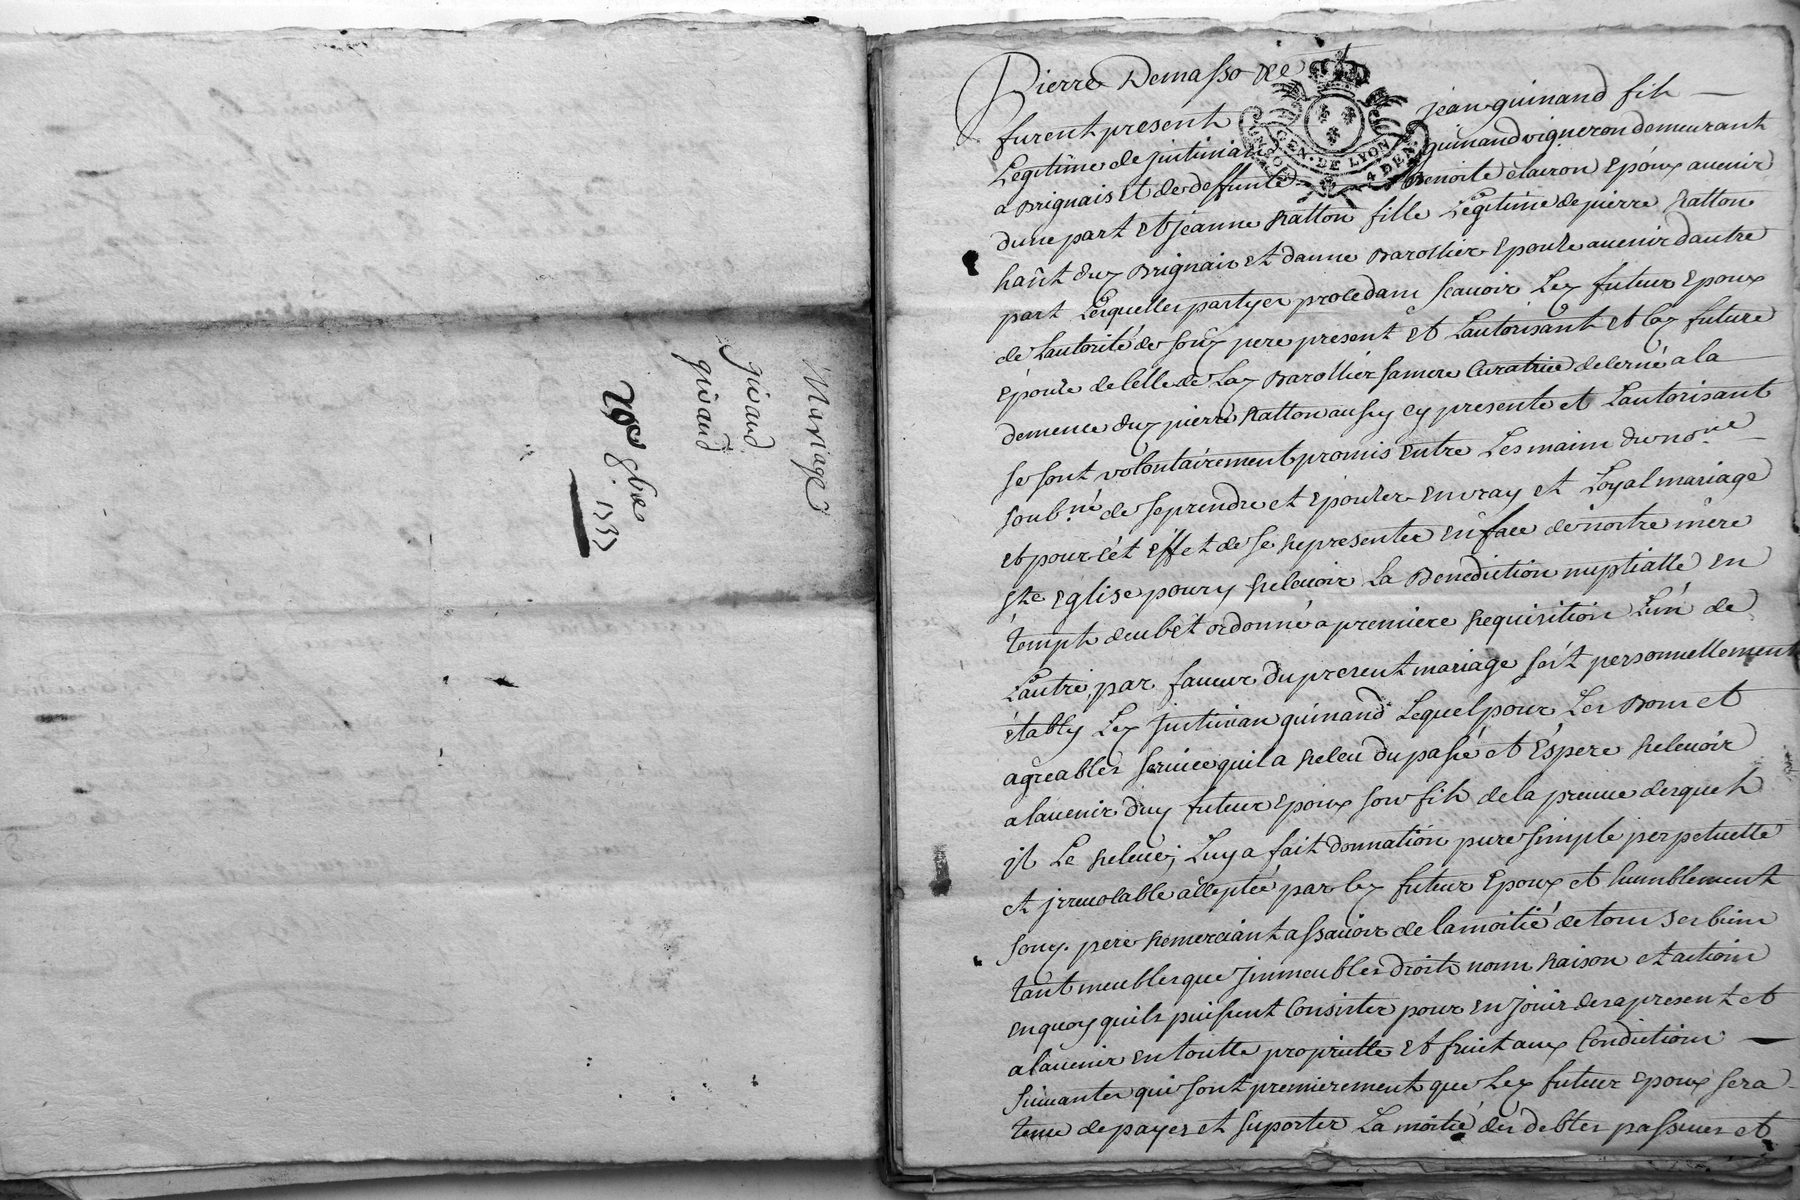 Mariage
giraud
giraud
29e 8bre
1737
Pierre Demasso de
GEN. DE LYON
4 DEN.
furent present jean guinand fils
Legitime de justinian guinand vigneron demeurant
a Brignais et de deffunte Benoite clairon Epoux avenir
dune part et jeanne Ratton fille Legitime de pierre Ratton
hânt dud Brignais et danne Barollier Epouse avenir dautre
part Lesquelles partyes procedans scavoir Led futeur Epoux
de Lautorité de sond pere present et Lautorisant et lad future
Epouse de celle de Lad Barollier sa mere Curatrice decernée a la
demence dud pierre Ratton aussy cy presente et Lautorisant
se sont volontairement promis entre Les mains du no.re
soub.né de se prendre et Epouser en vray et Loyal mariage
et pour cét éffet de se Representer en face de nostre mere
ste Eglise pour y Recevoir La Benediction nuptialle En
temps deub et ordonné a premiere Requisition Lun de
Lautre, par faveur du present mariage s'est personnellement
établÿ Led justinian guinand Lequel pour Les Bons et
agreables service quil a Receu du passé et Espere Recevoir
alavenir dud futeur Epoux son fils de la preuve desquels
il Le Releve; Luy a fait donnation pure simple perpetuelle
et jrrevocable acceptée par led futeur Epoux et humblement
sond. pere Remerciant assavoir de la moitié de tous ses biens
tant meubles que jmmeubles droits noms Raison et actions
en quoy quils puissent Consister pour en jouir des apresent et
alavenir en toutte propriette et fruit aux Conditions
suivantes qui sont premierement que Led futeur Epoux sera
tenu de payer et suporter La moitié des debtes passives et